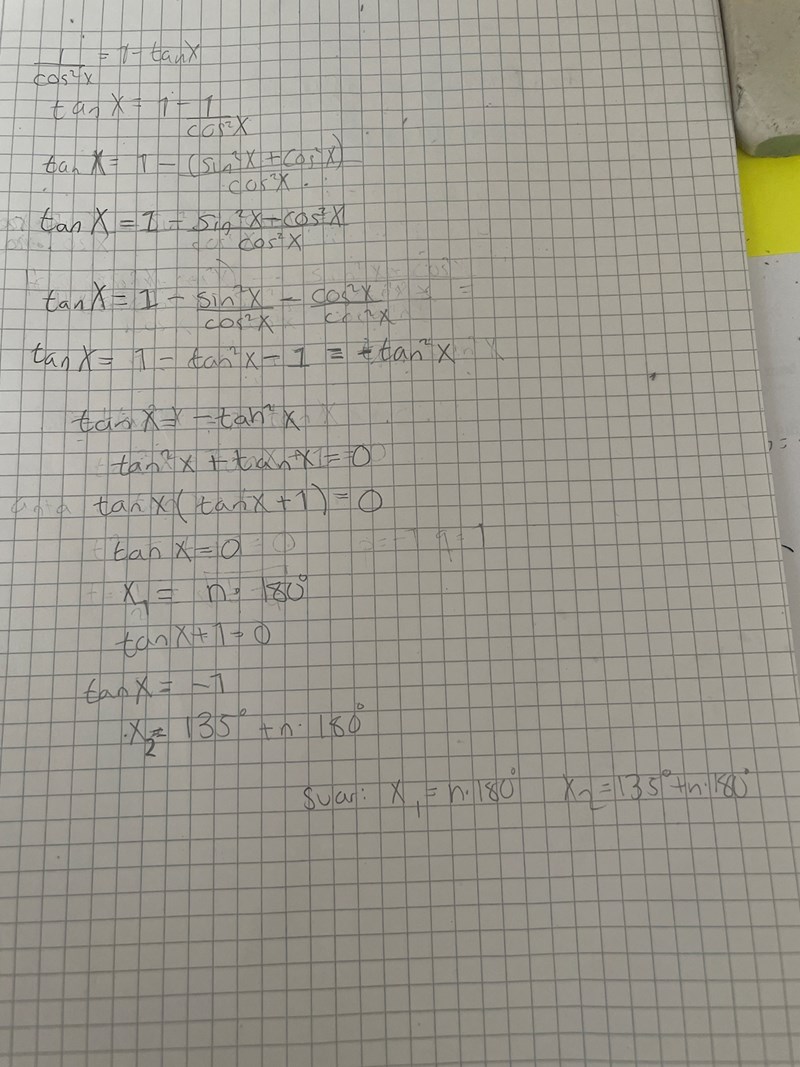 1/cos²x = 1 - tanx
tan x = 1 - 1/cos²x
tan x = 1 - (sin²x + cos²x)/cos²x
tan x = 1 - sin²x - cos²x/cos²x
tan x = 1 - sin²x/cos²x - cos²x/cos²x =
tan x = 1 - tan²x - 1 = -tan²x
tan x = -tan²x
tan²x + tan x = 0
tan x (tan x + 1) = 0
tan x = 0
x₁ = n · 180°
tan x + 1 = 0
tan x = -1
x₂ = 135° + n · 180°
Svar: x₁ = n · 180° x₂ = 135° + n · 180°